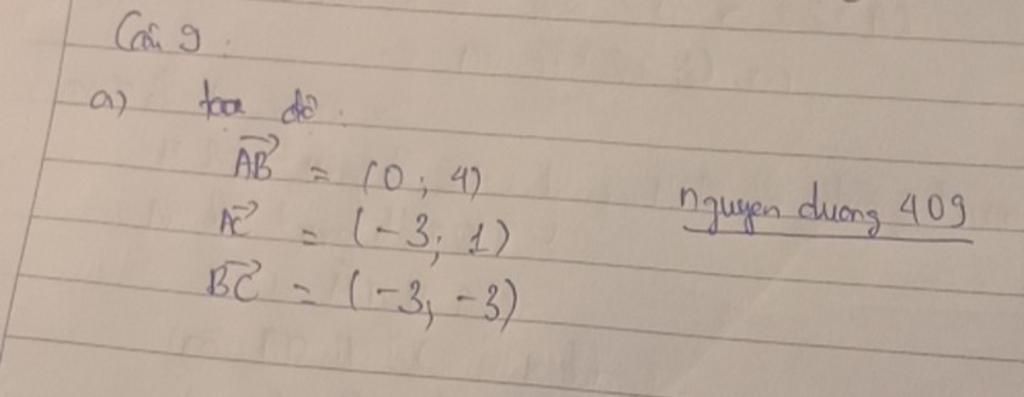 Câu 9.
a) toạ độ.
AB = (0; 4)
AC = (-3; 1)
BC = (-3; -3)
nguyen duong 409